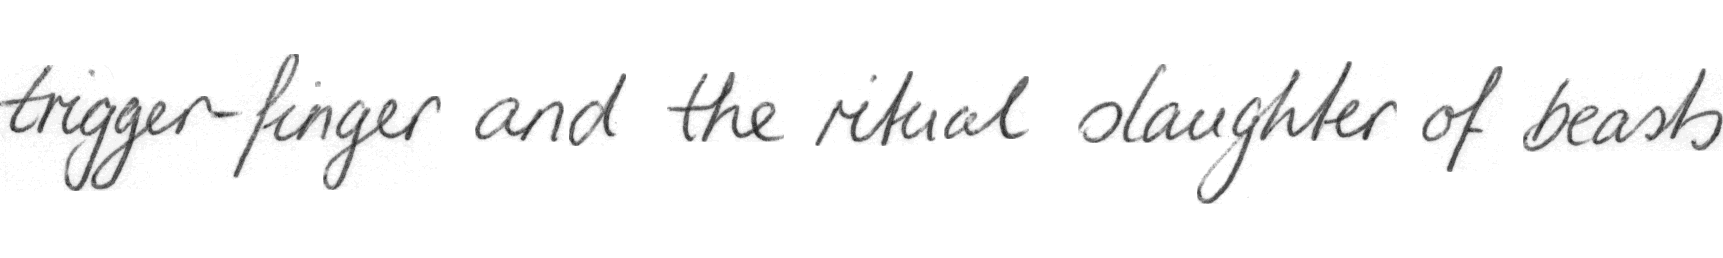 trigger-finger and the ritual slaughter of beasts